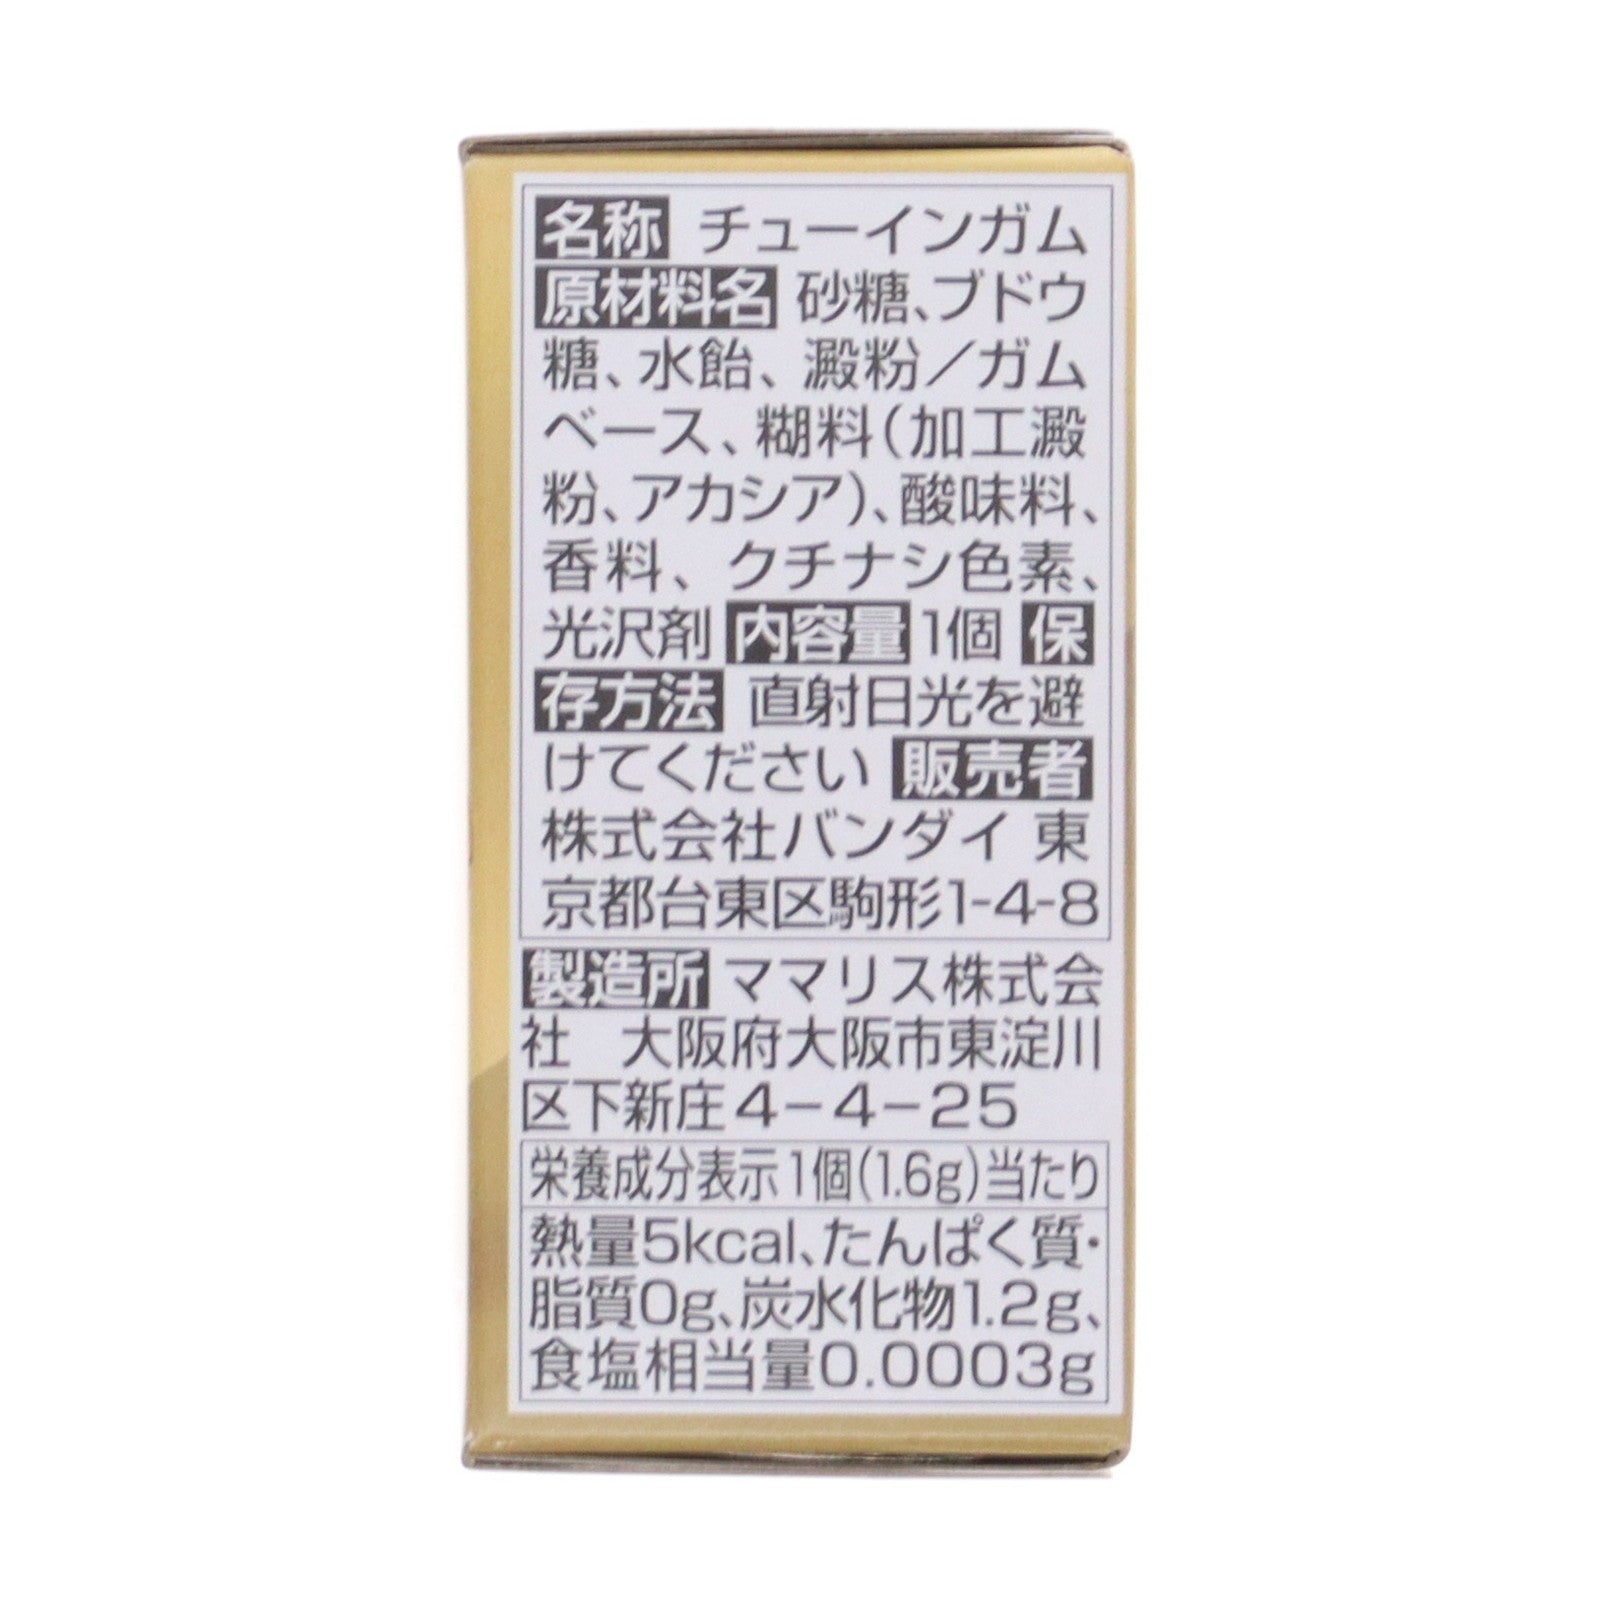 名称 チューインガム
原材料名 砂糖、ブドウ
糖、水飴、澱粉/ガム
ベース、糊料(加工澱
粉、アカシア)、酸味料、
香料、クチナシ色素、
光沢剤 内容量 1個 保
存方法 直射日光を避
けてください 販売者
株式会社バンダイ 東
京都台東区駒形1-4-8
製造所 ママリス株式会
社 大阪府大阪市東淀川
区下新庄4-4-25
栄養成分表示1個(1.6g)当たり
熱量5kcal、たんぱく質・
脂質0g、炭水化物1.2g、
食塩相当量0.0003g